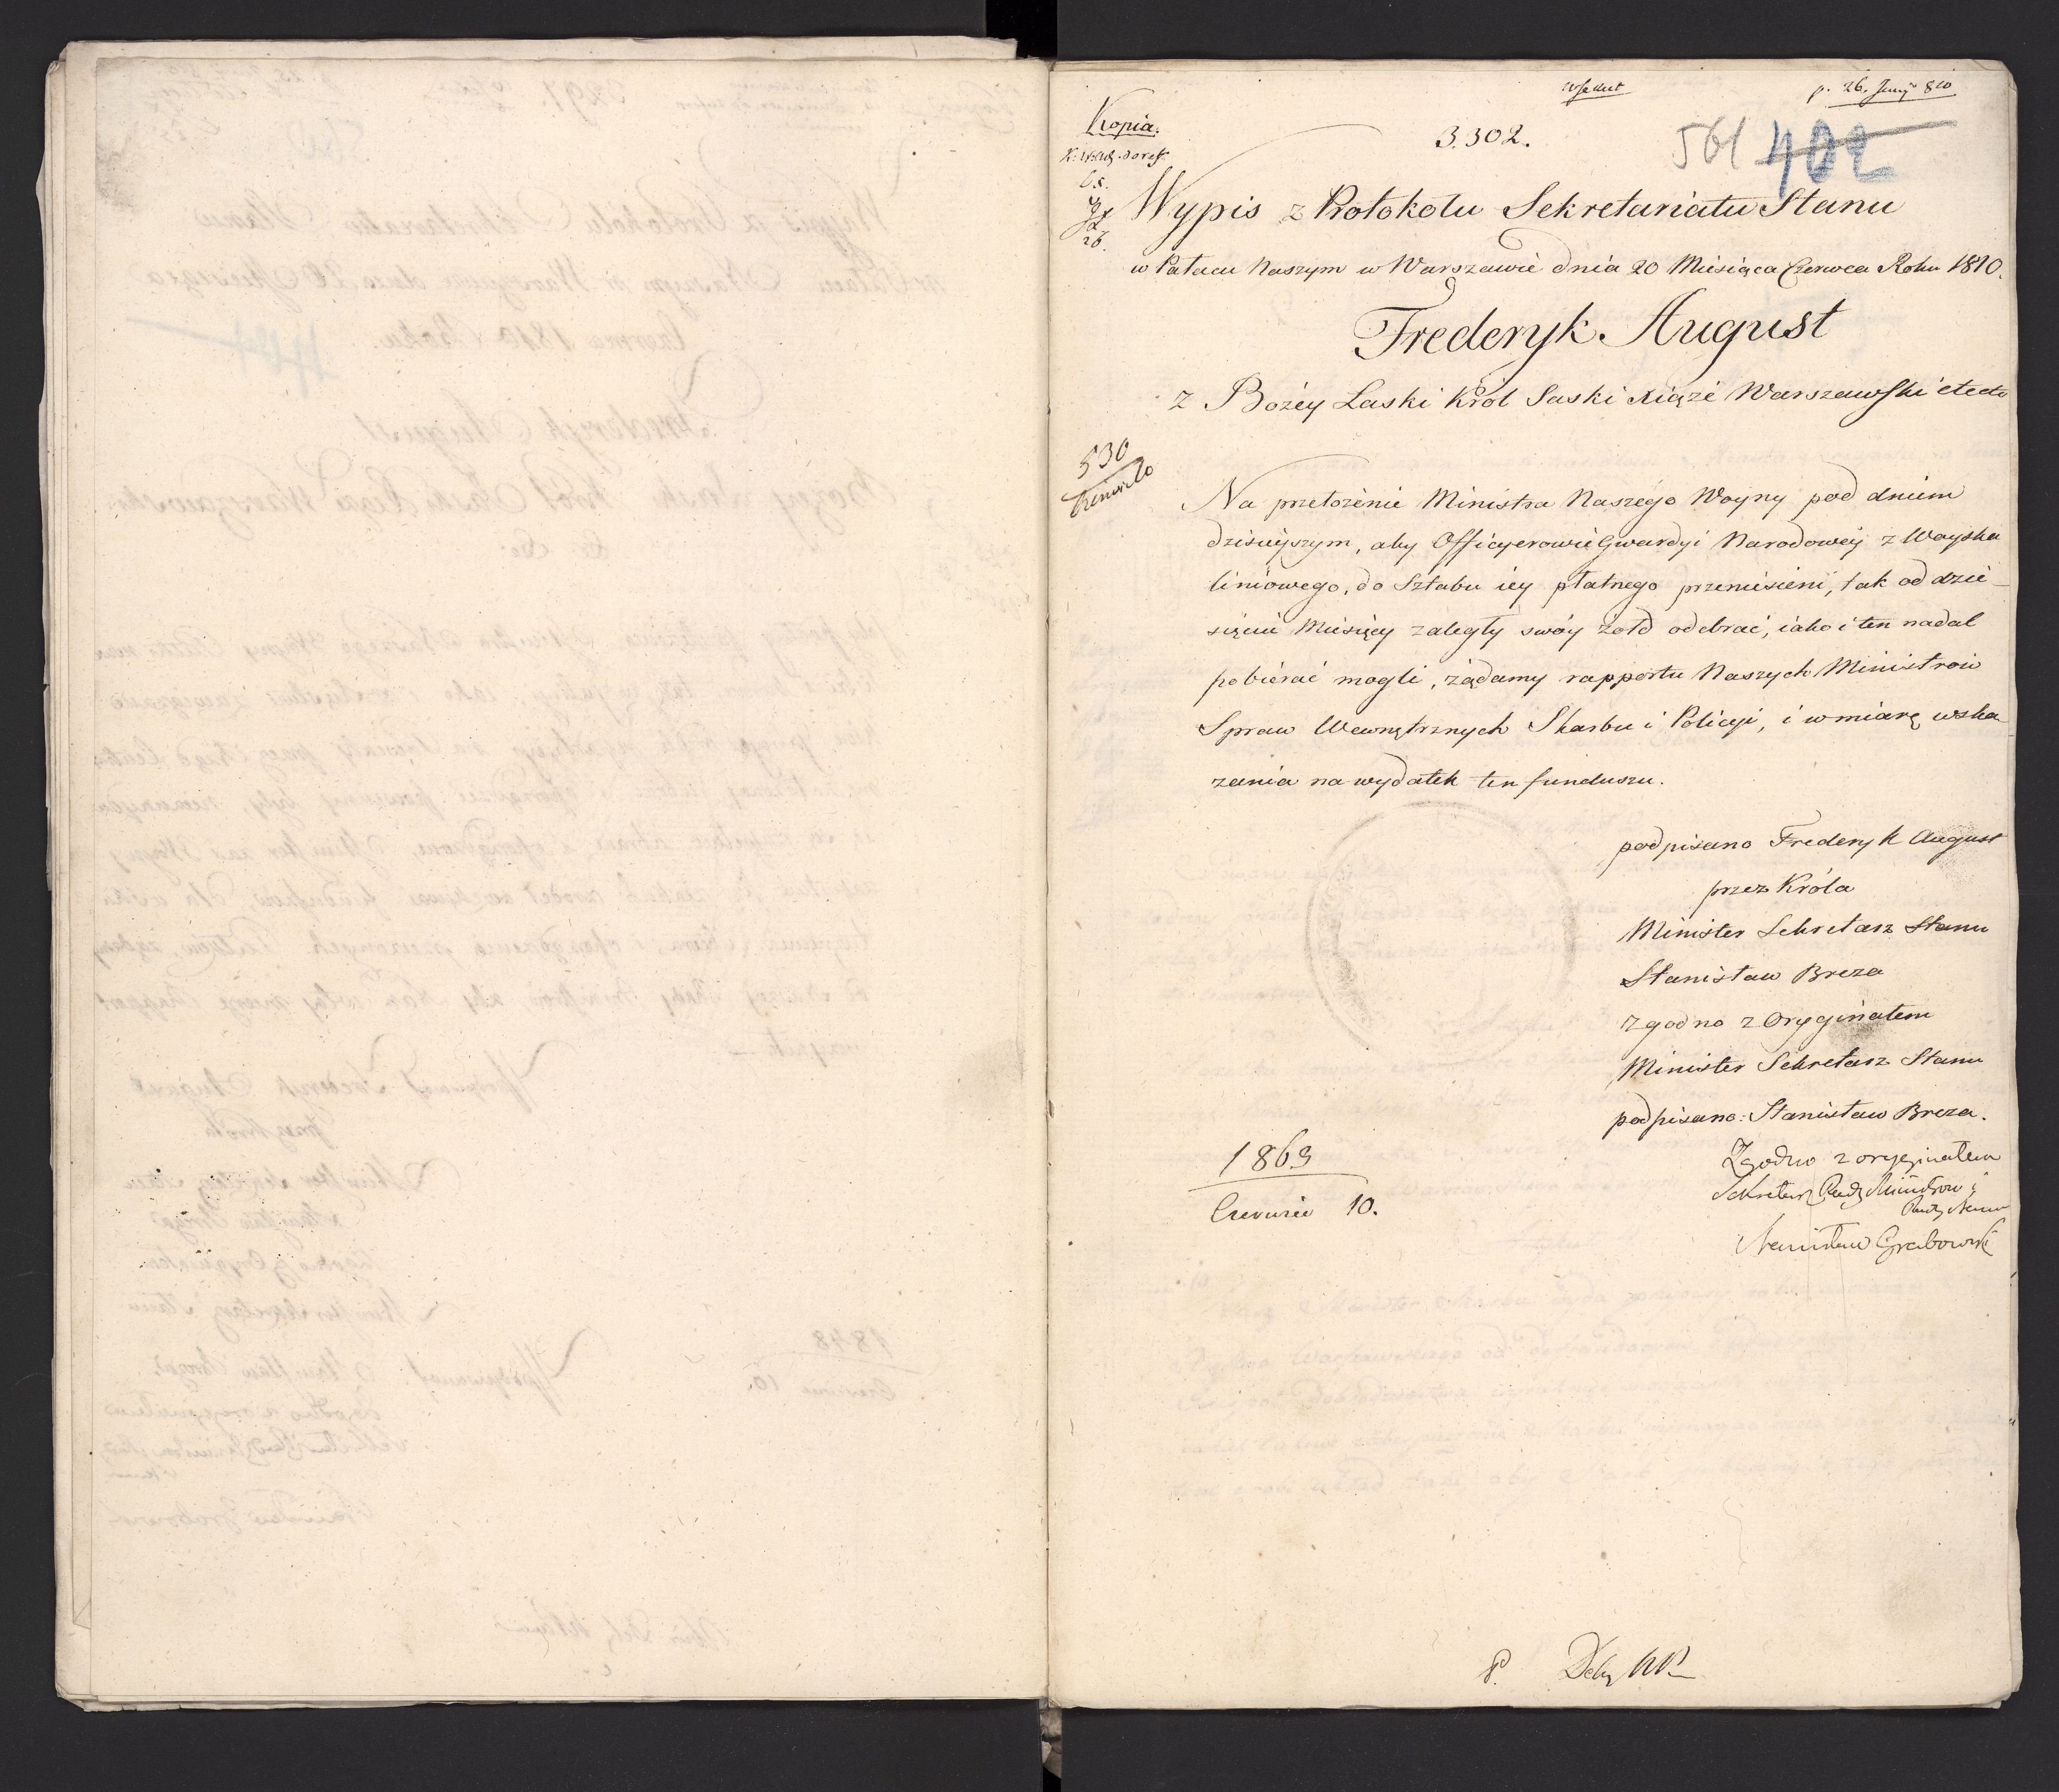 p. 26. Juny 810
Kopia.
3.302.
561 402
Wypis z Protokołu Sekretariatu Stanu
w Pałacu Naszym w Warszawie dnia 20 Miesiąca Czerwca Roku 1810.
Frederyk August
z Bożéy Łaski Król Saski Xiąże Warszawski etc etc
530
Na przełożenie Ministra Naszego Woyny pod dniem
dzisieyszym, aby Officyerowie Gwardyi Narodowéy z Woyska
liniowego, do Sztabu iéy płatnego przeniesieni, tak od dzie-
sięciu Miesięcy zaległy swóy żołd odebrać, iako i ten nadal
pobierać mogli, żądamy rapportu Naszych Ministrow
Spraw Wewnętrznych Skarbu i Policyi, i w miarę wska-
zania na wydatek ten funduszu.
podpisano Frederyk August
przez Króla
Minister Sekretarz Stanu
Stanisław Breza
Zgodno z Oryginałem
Minister Sekretarz Stanu
podpisano: Stanisław Breza.
Zgodno z oryginałem
Sekretarz Rady Ministrow i
Rady Stanu
Stanisław Grabowski
1863
Czerwiec 10.